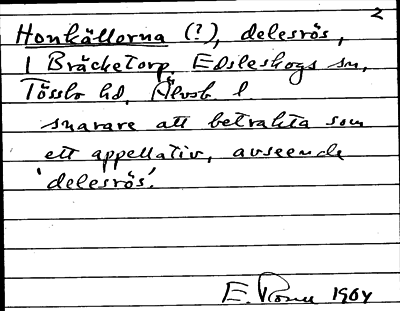 2
Honkällorna (?), delesrös,
1 Bräcketorp Edsleskogs sn,
Tössbo hd, Älvsb. l
snarare att betrakta som
ett appellativ, avseende
'delesrös'.
E. 1964